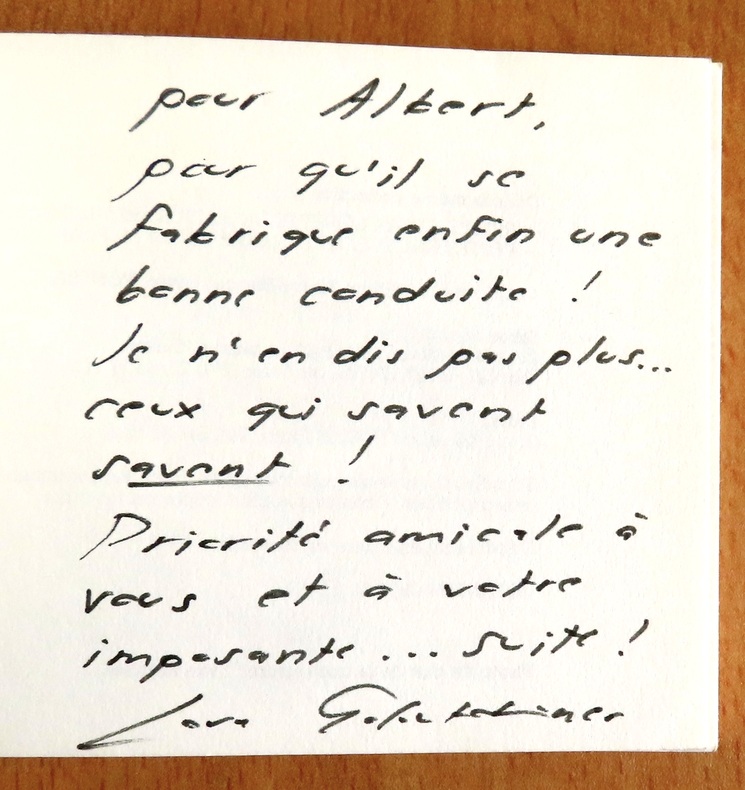 pour Albert,
pour qu'il se
fabrique enfin une
bonne conduite !
Je n'en dis pas plus...
ceux qui savent
savent !
Priorité amicale à
vous et à votre
imposante ... suite !